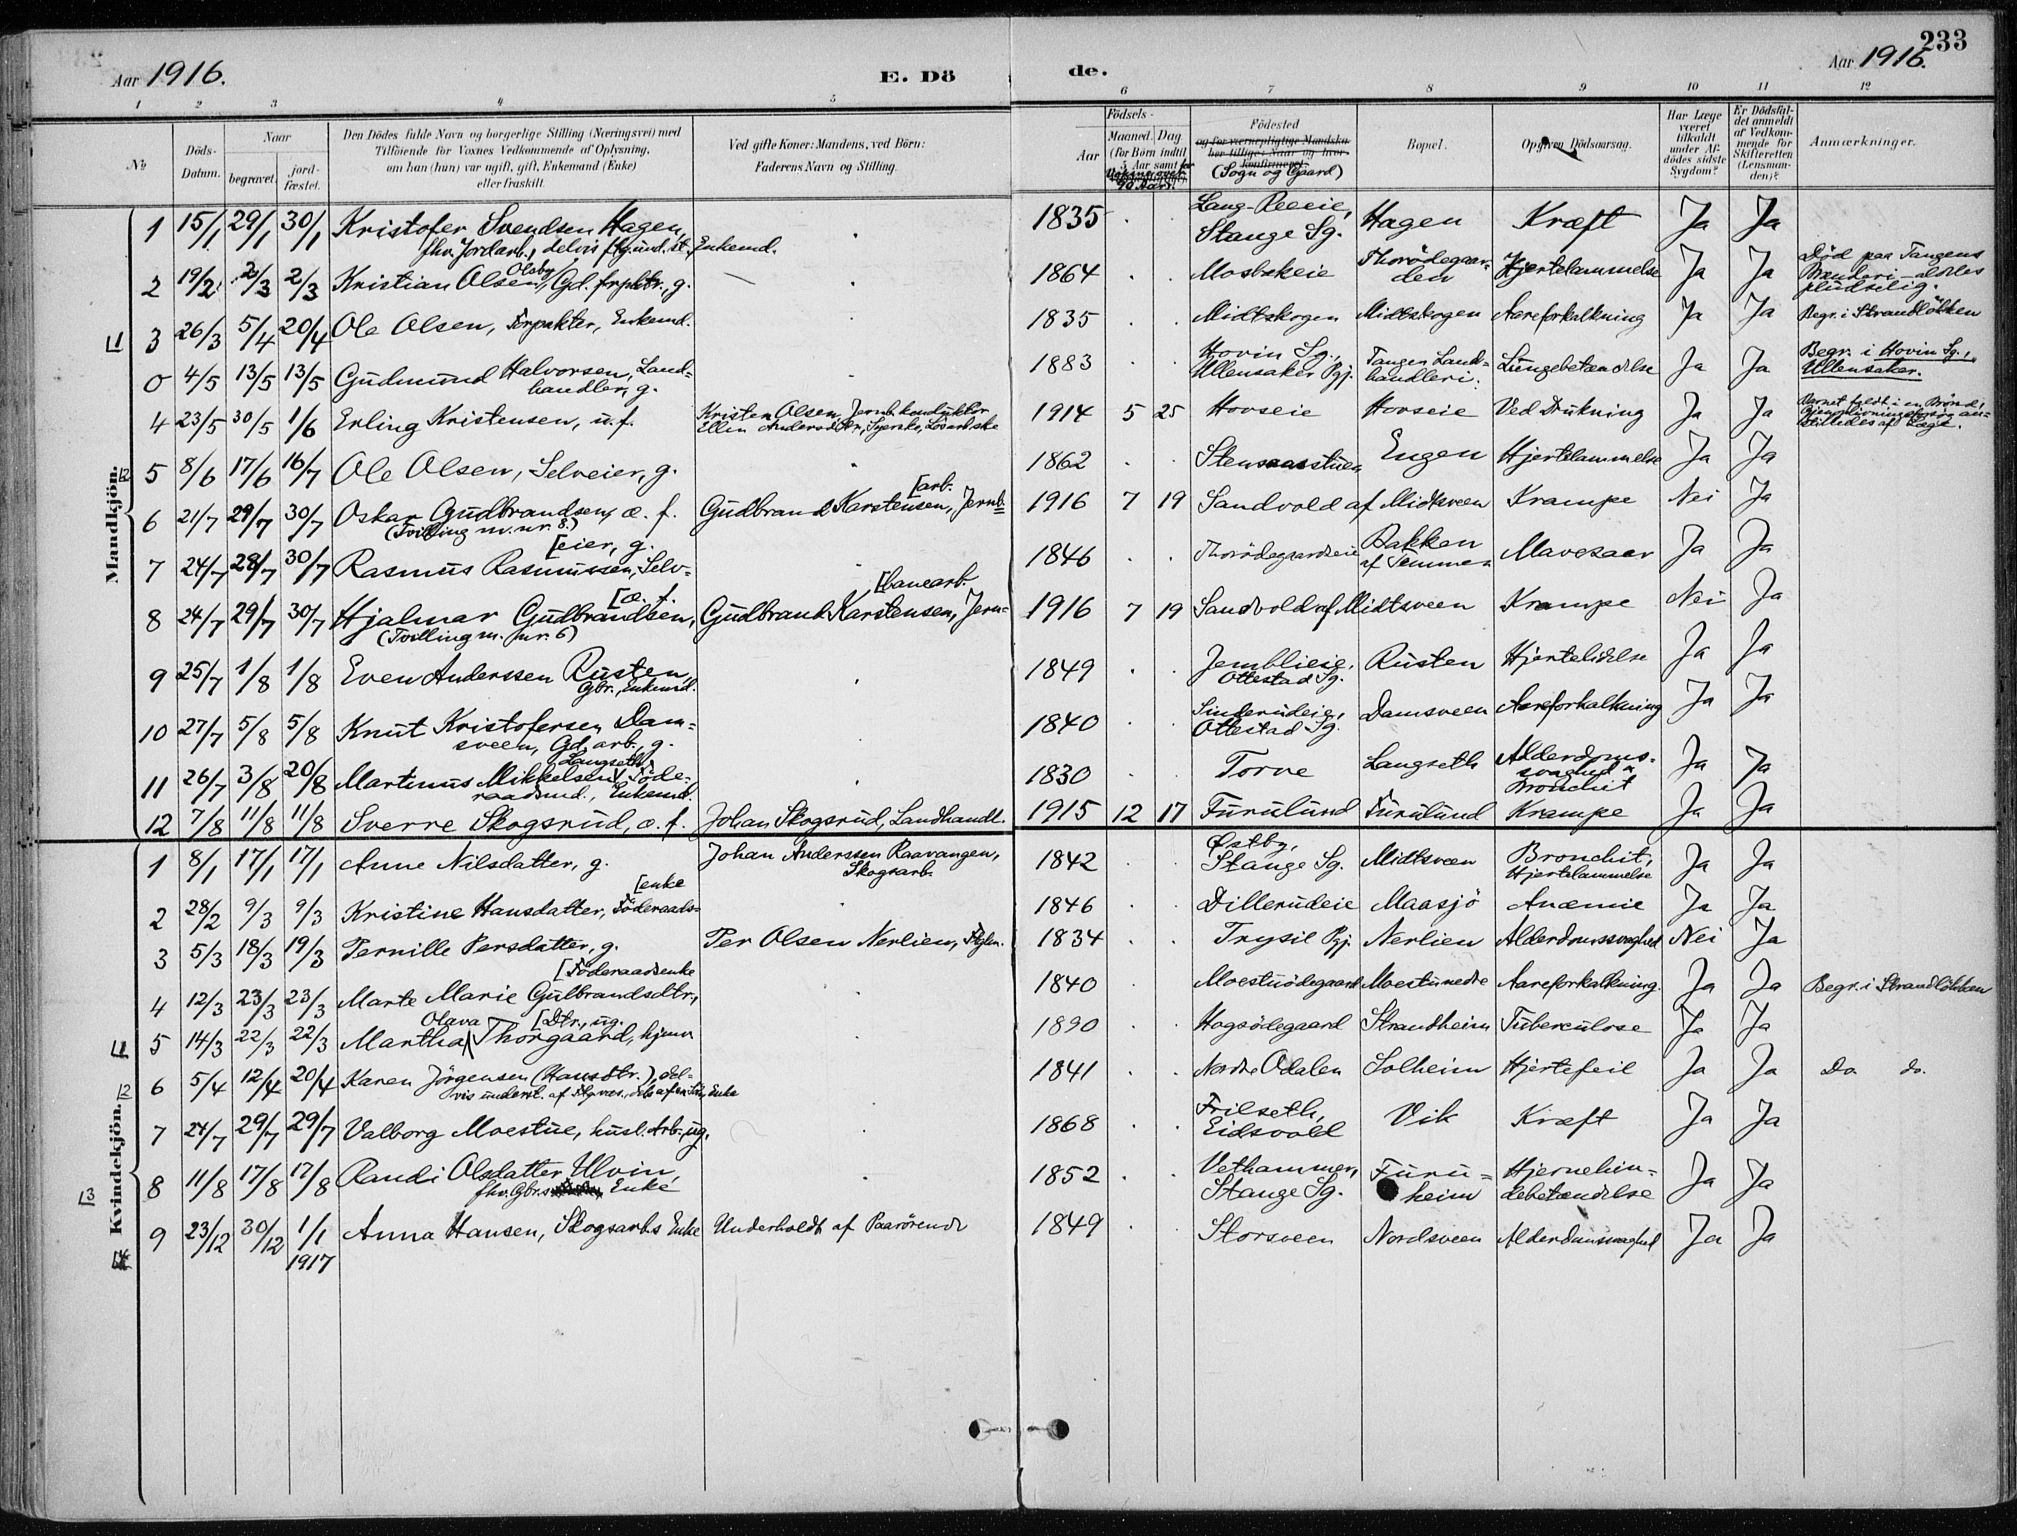 233
Aar 1916.
E. Dö
de.
Aar 1916.
1 2 3 4 5 6 7 8 9 10 11 12
№
Döds-Datum.
Naar
begravet.
jord-fæstet.
Den Dödes fulde Navn og borgerlige Stilling (Næringsvei) med
Tilföiende for Voxnes Vedkommende af Oplysning,
om han (hun) var ugift, gift, Enkemand (Enke)
eller fraskilt.
Ved gifte Koner: Mandens, ved Börn:
Faderens Navn og Stilling.
Födsels-
Aar
Maaned. Dag
(for Börn indtil
5 Aar samt for
90 Aar).
Födested
og for værnepligtige Mandskaber tillige: Naar og hvor konfirmeret.
(Sogn og Gaard)
Bopæl.
Opgiven Dödsaarsag.
Har Læge været tilkaldt under Afdödes sidste Sygdom?
Er Dödsfaldet anmeldt af Vedkommende for Skifteretten (Lensmanden)?
Anmærkninger.
Mandkjön.
1 15/1 29/1 30/1 Kristofer Svendsen Hagen, 1835 Stange Sg. Hagen Kræft Ja Ja
fhv. Jordarb., delvis Enkemd.
2 19/2 2/3 2/3 Kristian Olsen Olsby, Gd. frpktr., g. 1864 Mosbækeie Thorödegaarden Hjertelammelse Ja Ja Död paa Tangens Brænderi - aldeles pludselig.
3 26/3 5/4 20/4 Ole Olsen, Forpakter, Enkemd. 1835 Midtskogen Midtskogen Aareforkalkning Ja Ja Begr. i Strandlökken
0 4/5 13/5 13/5 Gudmund Halvorsen, Landhandler, g. 1883 Hovin Sg., Ullensaker Pgj. Tangen Landhandleri. Lungebetændelse Ja Ja Begr. i Hovin Sg., Ullensaker.
4 23/5 30/5 1/6 Erling Kristensen, u.f. Kristen Olsen, Jernb.konduktör 1914 5 25 Hovseie Hovseie Ved Drukning Ja Ja Barnet faldt i en Brönd,
af Læge.
5 8/6 17/6 16/7 Ole Olsen, Selveier, g. 1862 Engen Hjertelammelse Ja Ja
6 21/7 29/7 30/7 Oskar Gudbrandsen, æ. f. Gudbrand Karstensen, Jernb=[arb. 1916 7 19 Sandvold af Midtsveen Krampe Nei Ja
(Tvilling m. nr. 8.)
7 24/7 28/7 30/7 Rasmus Rasmussen, Selv=[eier, g. 1846 Thorödegaardseie Bakken Mavesaar Ja Ja
8 24/7 29/7 30/7 Hjalmar Gudbrandsen, [æ. f. Gudbrand Karstensen, Jern=[banearb. 1916 7 19 Sandvold af Midtsveen Krampe Nei Ja
(Tvilling m. nr. 6)
9 25/7 1/8 1/8 Even Anderssen Rusten, 1849 Jemblieie, Ottestad Sg. Rusten Hjertelidelse Ja Ja
Gbr., Enkemd.
10 27/7 5/8 5/8 Knut Kristofersen Dam= 1840 Sinderudeie, Ottestad Sg. Damsveen Aareforkalkning Ja Ja
sveen, Gd. arb., g.
11 26/7 3/8 20/8 Martinus Mikkelsen Langseth, Föde= 1830 Torve Langseth Alderdoms-svaghed & Bronchit Ja Ja
raadsmd., Enkemd.
12 7/8 11/8 11/8 Sverre Skogsrud, æ. f. Johan Skogsrud, Landhandl. 1915 12 17 Furulund Furulund Krampe Ja Ja
Kvindekjön.
1 8/1 17/1 17/1 Anne Nilsdatter, g. Johan Anderssen Raavangen, Skogsarb. 1842 Østby, Stange Sg. Midtsveen Bronchit, Hjertelammelse Ja Ja
2 28/2 9/3 9/3 Kristine Hansdatter, Föderaads=[enke 1846 Dillerudeie Maasjö Anæmie Ja Ja
3 5/3 18/3 19/3 Pernille Persdatter, g. Per Olsen Nerlien, 1834 Trysil Pgj. Nerlien Alderdomssvaghed Nei Ja
4 12/3 23/3 23/3 Marte Marie Gulbrandsdtr., [Föderaadsenke 1840 Moestuödegaard Moestunedre Aareforkalkning. Ja Ja Begr. i Strandlökken
5 14/3 22/3 22/3 Martha Olava Thorgaard, hjemv. [Dtr., ug. 1890 Hagsödegaard Strandheim Tuberculose Ja Ja
6 5/4 12/4 20/4 Karen Jörgensen (Hansdtr.), del= 1841 Nordre Odalen Solheim Hjertefeil Ja Ja Do. do.
vis underst. af Enke
7 24/7 29/7 29/7 Valborg Moestue, husl. Arb., ug. 1868 Frilseth, Eidsvold Vik Kræft Ja Ja
8 11/8 17/8 17/8 Randi Olsdatter Ulvin, 1852 Vethammer, Stange Sg. Furu=heim Hjernehin=debetændelse Ja Ja
fhv. Gbr.s Enke
9 23/12 30/12 1/1 1917 Anna Hansen, Skogsarb.s Enke Underholdt af Paarörende 1849 Storsveen Nordsveen Alderdomssvaghed Ja Ja